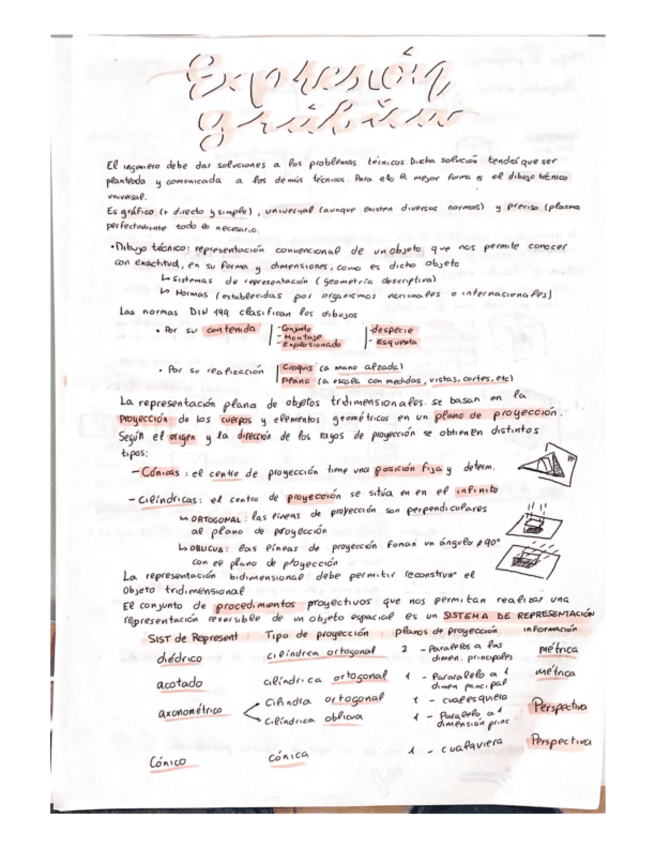 Expresión
gráfica
El ingeniero debe dar soluciones a los problemas técnicos. Dicha solución tendrá que ser
planteada y comunicada a los demás técnicos. Para ello la mejor forma es el dibujo técnico
universal.
Es gráfico (+ directo y simple), universal (aunque existen diversas normas) y preciso (plasma
perfectamente todo lo necesario.
• Dibujo técnico: representación convencional de un objeto, que nos permite conocer
con exactitud, en su forma y dimensiones, como es dicho objeto
↳ Sistemas de representación (geometría descriptiva)
↳ Normas (establecidas por organismos nacionales o internacionales)
Las normas DIN 199 clasifican los dibujos
• Por su contenida - Conjunto despecie
- Montaje - Esquema
- Explosionado
• Por su realización Croquis (a mano alzada)
Plano (a escala con medidas, vistas, cortes, etc)
La representación plana de objetos tridimensionales se basan en la
Proyección de los cuerpos y elementos geométricos en un plano de proyección.
Según el origen y la dirección de los rayos de proyección se obtienen distintos
tipos:
- Cónicas: el centro de proyección tiene una posición fija y determ.
- Cilíndricas: el centro de proyección se sitúa en en el infinito
↳ ORTOGONAL: las líneas de proyección son perpendiculares
al plano de proyección
↳ OBLICUA: las líneas de proyección forman un ángulo ≠ 90°
con el plano de proyección
La representación bidimensional debe permitir reconstruir el
Objeto tridimensional
El conjunto de procedimientos proyectivos que nos permitan realizar una
representación reversible de un objeto espacial es un SISTEMA DE REPRESENTACIÓN
SIST de Represent Tipo de proyección planos de proyección información
diédrico cilíndrica ortogonal 2 - Paralelos a las métrica
dimen. principales
acotado cilíndrica ortogonal 1 - Paralelo a 1 métrica
dimen principal
axonométrico cilindra ortogonal 1 - cualesquiera Perspectiva
cilíndrica oblicua 1 - Paralelo a 1
dimensión princ
Cónico cónica 1 - cualquiera Perspectiva